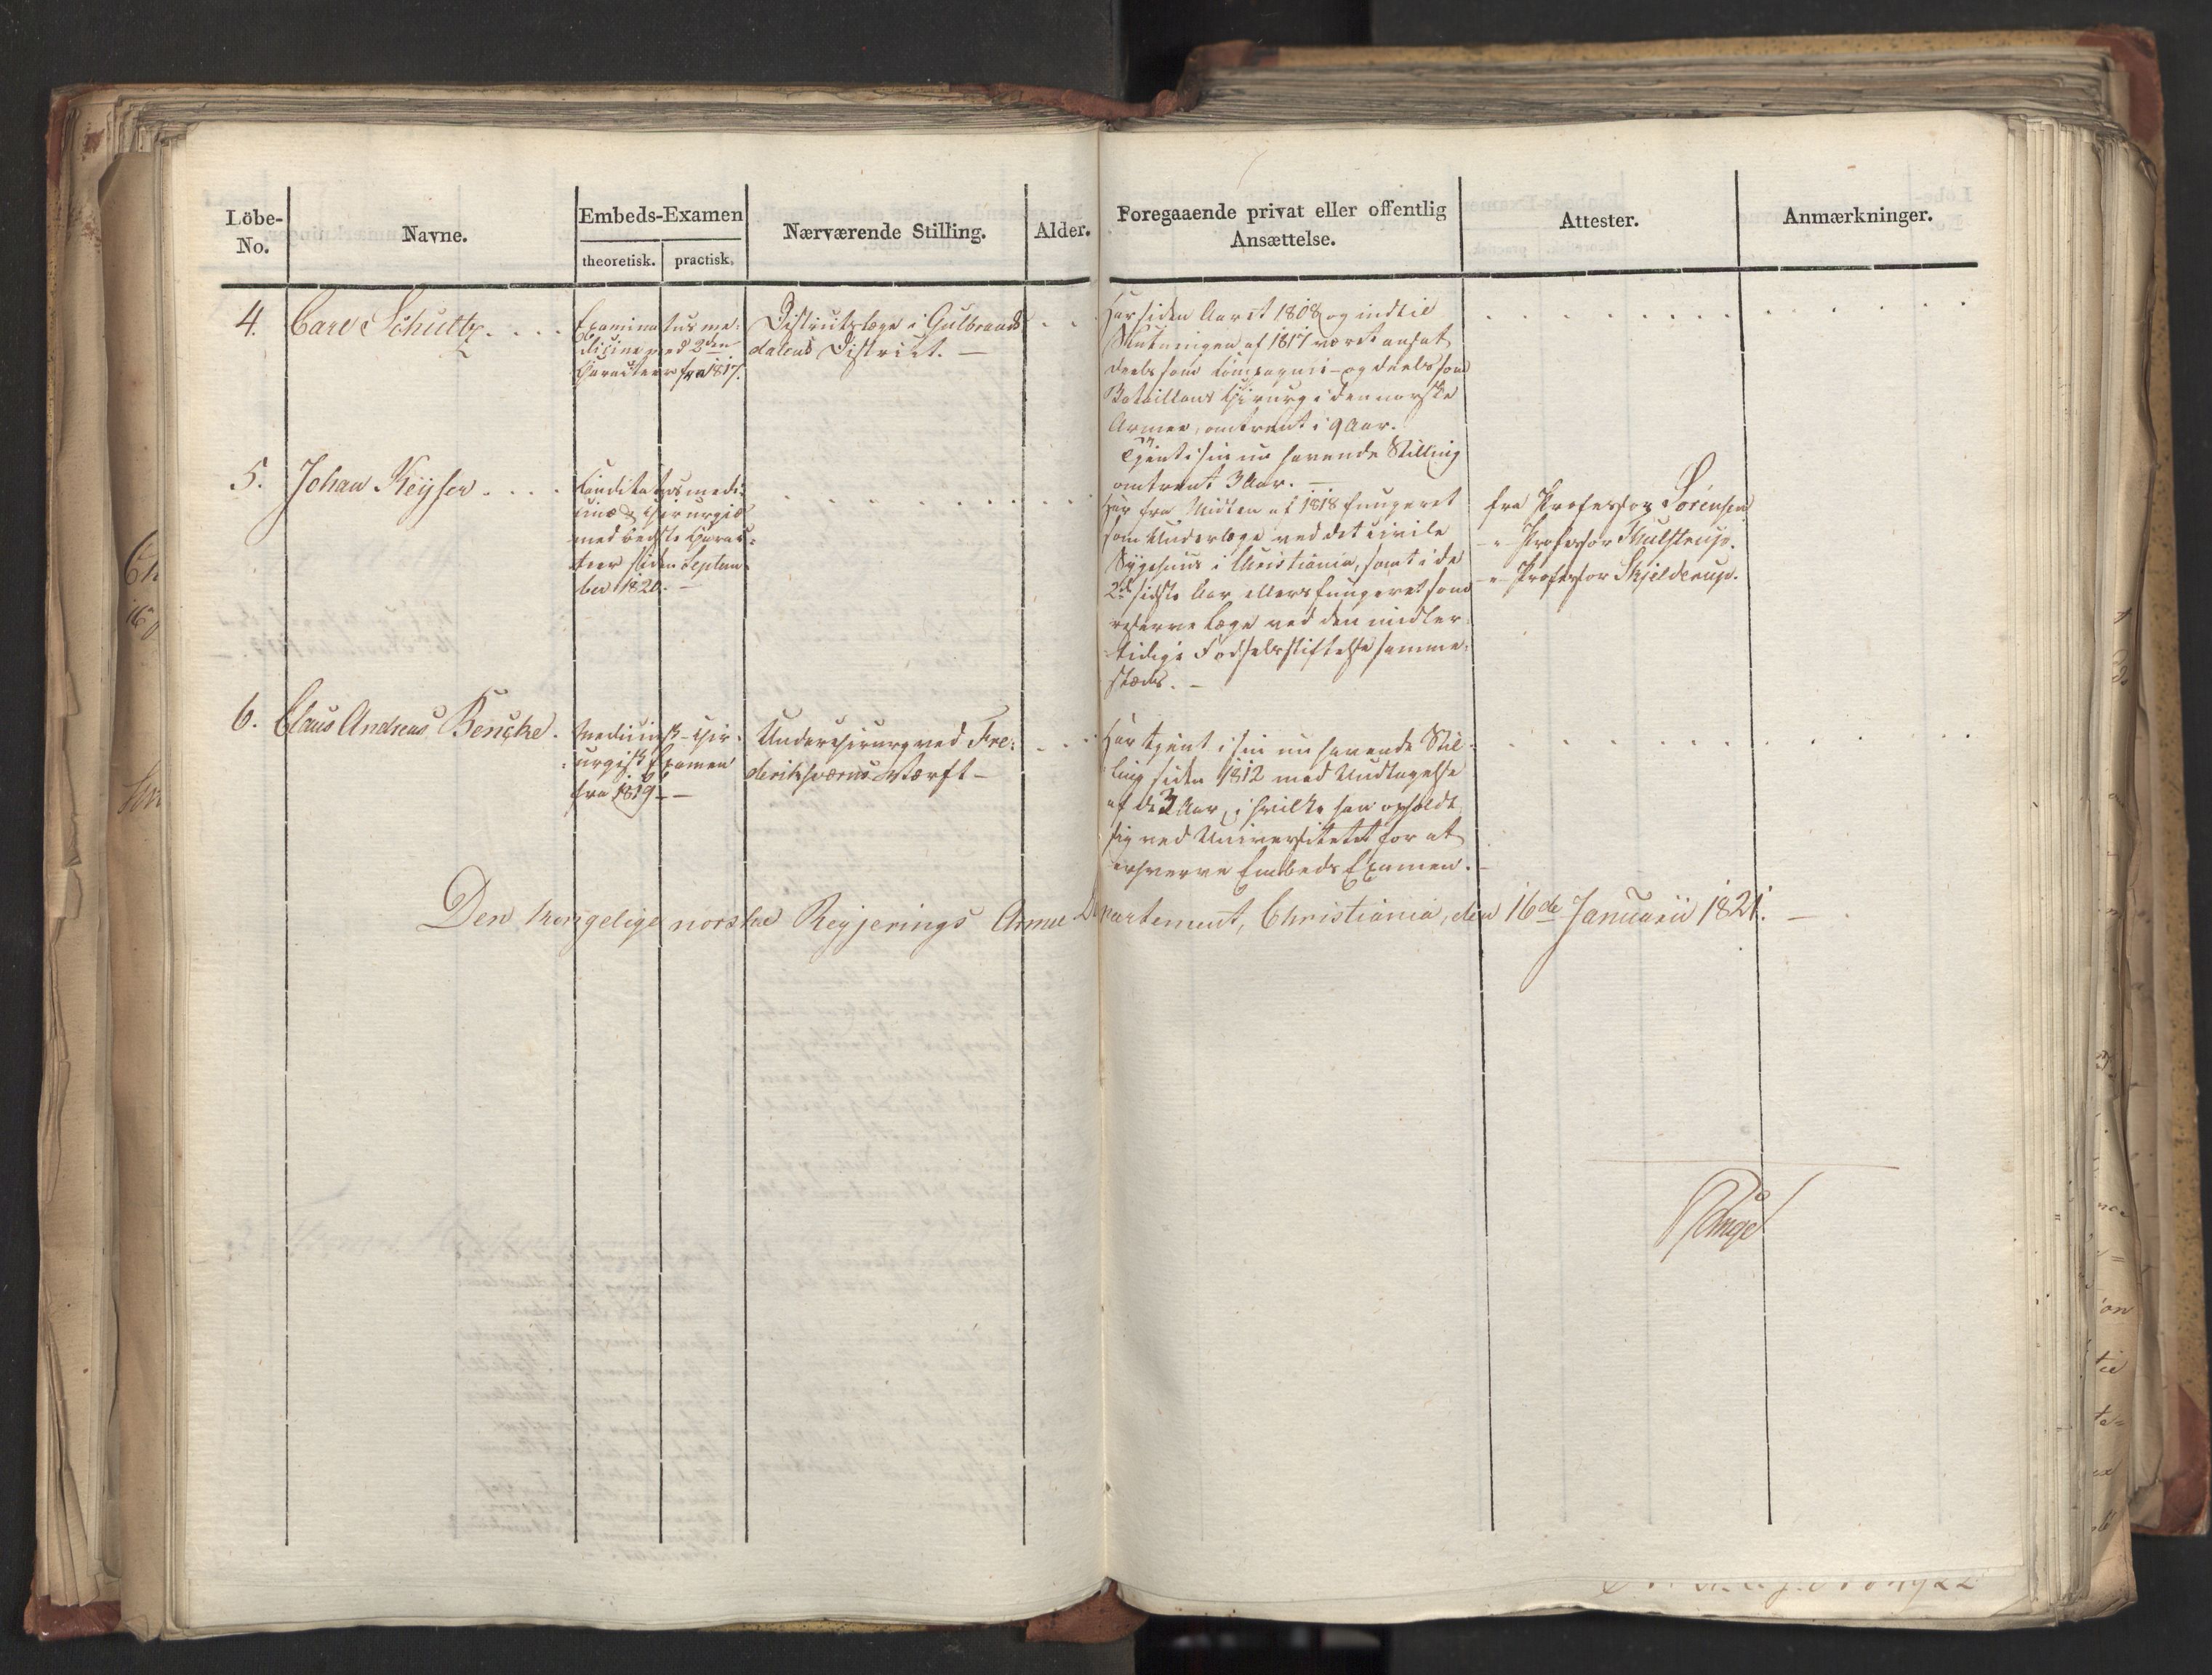 Löbe-
No.
Navne.
Embeds-Examen
theoretisk.
practisk.
Nærværende Stilling.
Alder.
Foregaaende privat eller offentlig
Ansættelse.
Attester.
Anmærkninger.
4.
Carl Schultz
Examinatus me-
dicinæ med 2den
Character fra 1817.
Districtslæge i Gulbrands
dalens District. —
Har siden Aaret 1808 og indtil
Slutningen af 1817 været ansat
deels som Compagnie- og deels som
Bataillons Chirurg i den norske
Armee, omtrent i 9 Aar.
Tjent i sin nu havende Stilling
omtrent 3 Aar. —
5.
Johan Keyser
Canditatus medi-
cinæ & Chirurgiæ
med bedste Charac-
teer siden Septem-
ber 1820. —
Har fra Midten af 1818 fungeret
som Underlæge ved det civile
Sygehuus i Christiania, samt i de
2de sidste Aar ellers fungeret som
reserve Læge ved den midler-
tidige Fødselsstiftelse samme-
steds. —
fra Professor Sörensen
" Professor Thulstrup.
" Professor Skjelderup.
6.
Claus Andreas Bencke.
Medicinsk-Chir-
urgisk Examen
fra 1819 —
Underchirurg ved Fre-
deriksværns Værft —
Har tjent i sin nu havende Stil-
ling siden 1812 med Undtagelse
af de 3 Aar, i hvilke han opholdt
sig ved Universitetet for at
erhverve Embeds Examen. —
Den kongelige norske Regjerings Armee Departement, Christiania, den 16de Januarii 1821. —